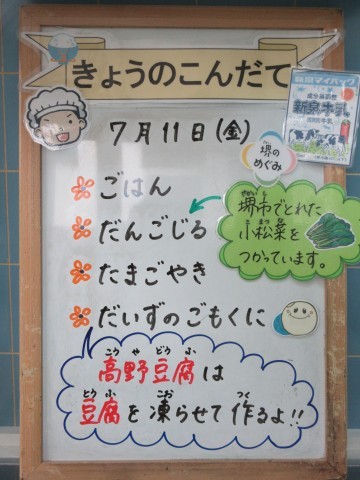 きょうのこんだて
7月11日(金)
堺の
めぐみ
ごはん
だんごじる
たまごやき
だいずのごもくに
堺市でとれた
小松菜を
つかっています。
高野豆腐は
豆腐を凍らせて作るよ!!
泉州マイパック
新泉牛乳